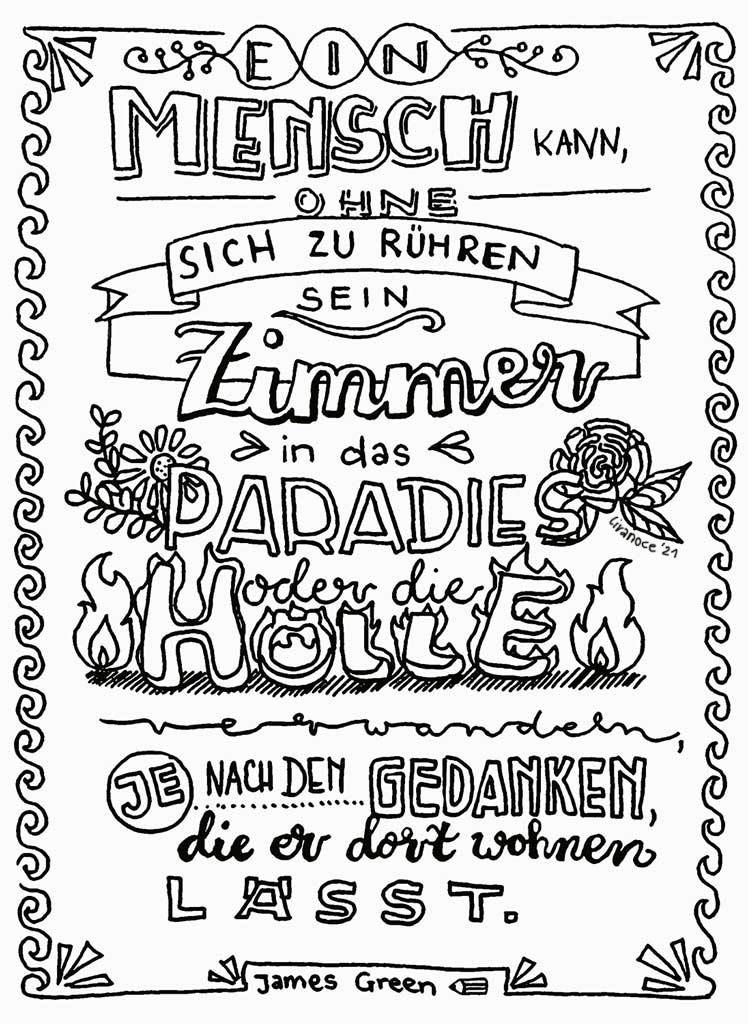 EIN
MENSCH KANN,
OHNE
SICH ZU RÜHREN
SEIN
Zimmer
in das
PARADIES
Livanoce '21
oder die
HÖLLE
verwandeln,
JE NACH DEN GEDANKEN,
die er dort wohnen
LÄSST.
James Green